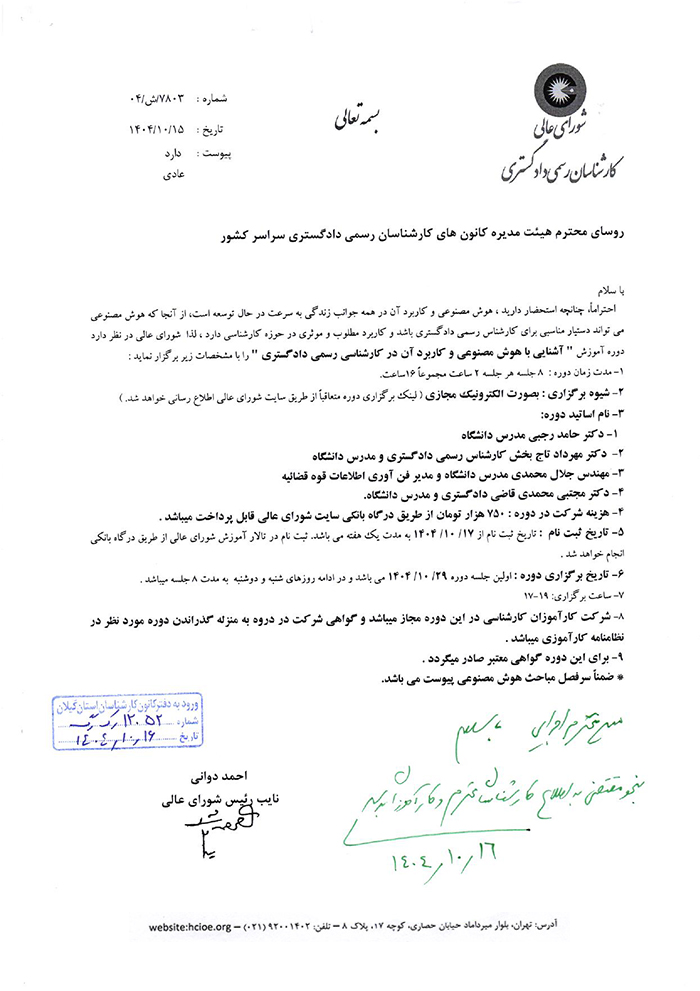 شورای عالی
کارشناسان رسمی دادگستری
بسمه تعالی
شماره : ۷۸۰۳/ش/۰۴
تاریخ : ۱۴۰۴/۱۰/۱۵
پیوست : دارد
عادی
روسای محترم هیئت مدیره کانون های کارشناسان رسمی دادگستری سراسر کشور
با سلام
احتراماً، چنانچه استحضار دارید ، هوش مصنوعی و کاربرد آن در همه جوانب زندگی به سرعت در حال توسعه است، از آنجا که هوش مصنوعی
می تواند دستیار مناسبی برای کارشناس رسمی دادگستری باشد و کاربرد مطلوب و موثری در حوزه کارشناسی دارد ، لذا شورای عالی در نظر دارد
دوره آموزش " آشنایی با هوش مصنوعی و کاربرد آن در کارشناسی رسمی دادگستری " را با مشخصات زیر برگزار نماید :
۱- مدت زمان دوره : ۸ جلسه هر جلسه ۲ ساعت مجموعاً ۱۶ساعت.
۲- شیوه برگزاری : بصورت الکترونیک مجازی ( لینک برگزاری دوره متعاقباً از طریق سایت شورای عالی اطلاع رسانی خواهد شد. )
۳- نام اساتید دوره:
۱- دکتر حامد رجبی مدرس دانشگاه
۲- دکتر مهرداد تاج بخش کارشناس رسمی دادگستری و مدرس دانشگاه
۳- مهندس جلال محمدی مدرس دانشگاه و مدیر فن آوری اطلاعات قوه قضائیه
۴- دکتر مجتبی محمدی قاضی دادگستری و مدرس دانشگاه.
۴- هزینه شرکت در دوره : ۷۵۰ هزار تومان از طریق درگاه بانکی سایت شورای عالی قابل پرداخت میباشد .
۵- تاریخ ثبت نام : تاریخ ثبت نام از ۱۷/ ۱۰/ ۱۴۰۴ به مدت یک هفته می باشد. ثبت نام در تالار آموزش شورای عالی از طریق درگاه بانکی
انجام خواهد شد .
۶- تاریخ برگزاری دوره : اولین جلسه دوره ۲۹/ ۱۰/ ۱۴۰۴ می باشد و در ادامه روزهای شنبه و دوشنبه به مدت ۸ جلسه میباشد .
۷- ساعت برگزاری: ۱۹-۱۷
۸- شرکت کارآموزان کارشناسی در این دوره مجاز میباشد و گواهی شرکت در دروه به منزله گذراندن دوره مورد نظر در
نظامنامه کارآموزی میباشد .
۹- برای این دوره گواهی معتبر صادر میگردد .
* ضمناً سرفصل مباحث هوش مصنوعی پیوست می باشد.
ورود به دفتر کانون کارشناسان استان گیلان
شماره : ۱۲۰۵۲
تاریخ : ۱۴۰۴/۱۰/۱۶
احمد دوانی
نایب رئیس شورای عالی
با سلام
بنحو مقتضی به اطلاع کارشناسان محترم و کارآموزان برسد
۱۴۰۴/۱۰/۱۶
آدرس: تهران، بلوار میرداماد خیابان حصاری، کوچه ۱۷، پلاک ۸ – تلفن: ۹۲۰۰۱۴۰۲ (۰۲۱) – website:hcioe.org